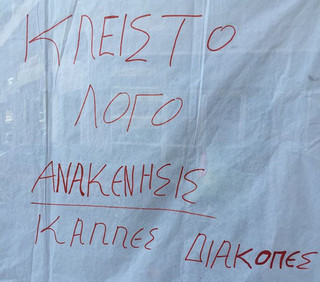 ΚΛΕΙΣΤΟ
ΛΟΓΟ
ΑΝΑΚΕΝΗΣΙΣ
ΚΑΠΠΕΣ ΔΙΑΚΟΠΕΣ